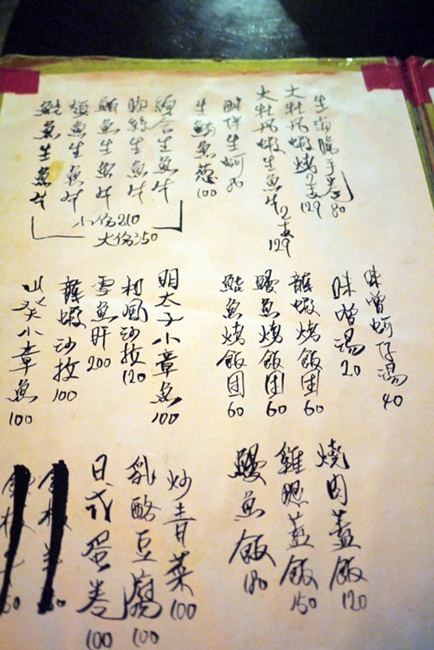 生海膽手卷80
大牡丹蝦烤2支129
大牡丹蝦生魚片2支129
生鯖魚蔥100
綜合生魚片
鮪魚生魚片
旗魚生魚片
鮭魚生魚片
小份210
大份350
味噌蚵仔湯40
味噌湯20
龍蝦烤飯团60
鰻魚烤飯团60
鮭魚烤飯团60
明太子小章魚100
和風沙拉120
雪魚肝200
龍蝦沙拉100
山葵小章魚100
燒肉蓋飯120
雞腿蓋飯150
鰻魚飯180
炒青菜100
乳酪豆腐100
日式蛋卷100